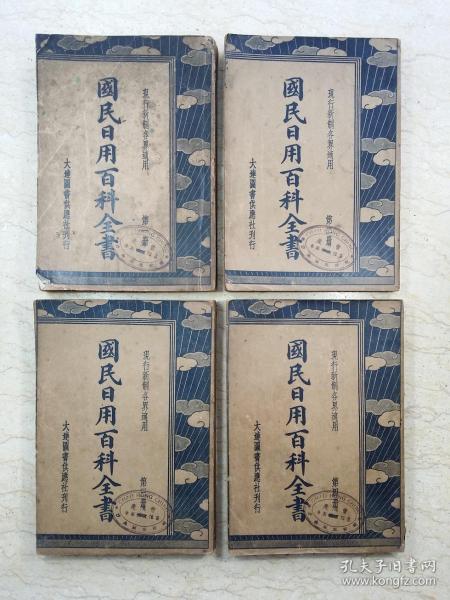 現行新制各界適用
國民日用百科全書
第一冊
大達圖書供應社刊行
現行新制各界適用
國民日用百科全書
第二冊
大達圖書供應社刊行
現行新制各界適用
國民日用百科全書
第三冊
大達圖書供應社刊行
現行新制各界適用
國民日用百科全書
第四冊
大達圖書供應社刊行
孔夫子旧书网
www.kongfz.com